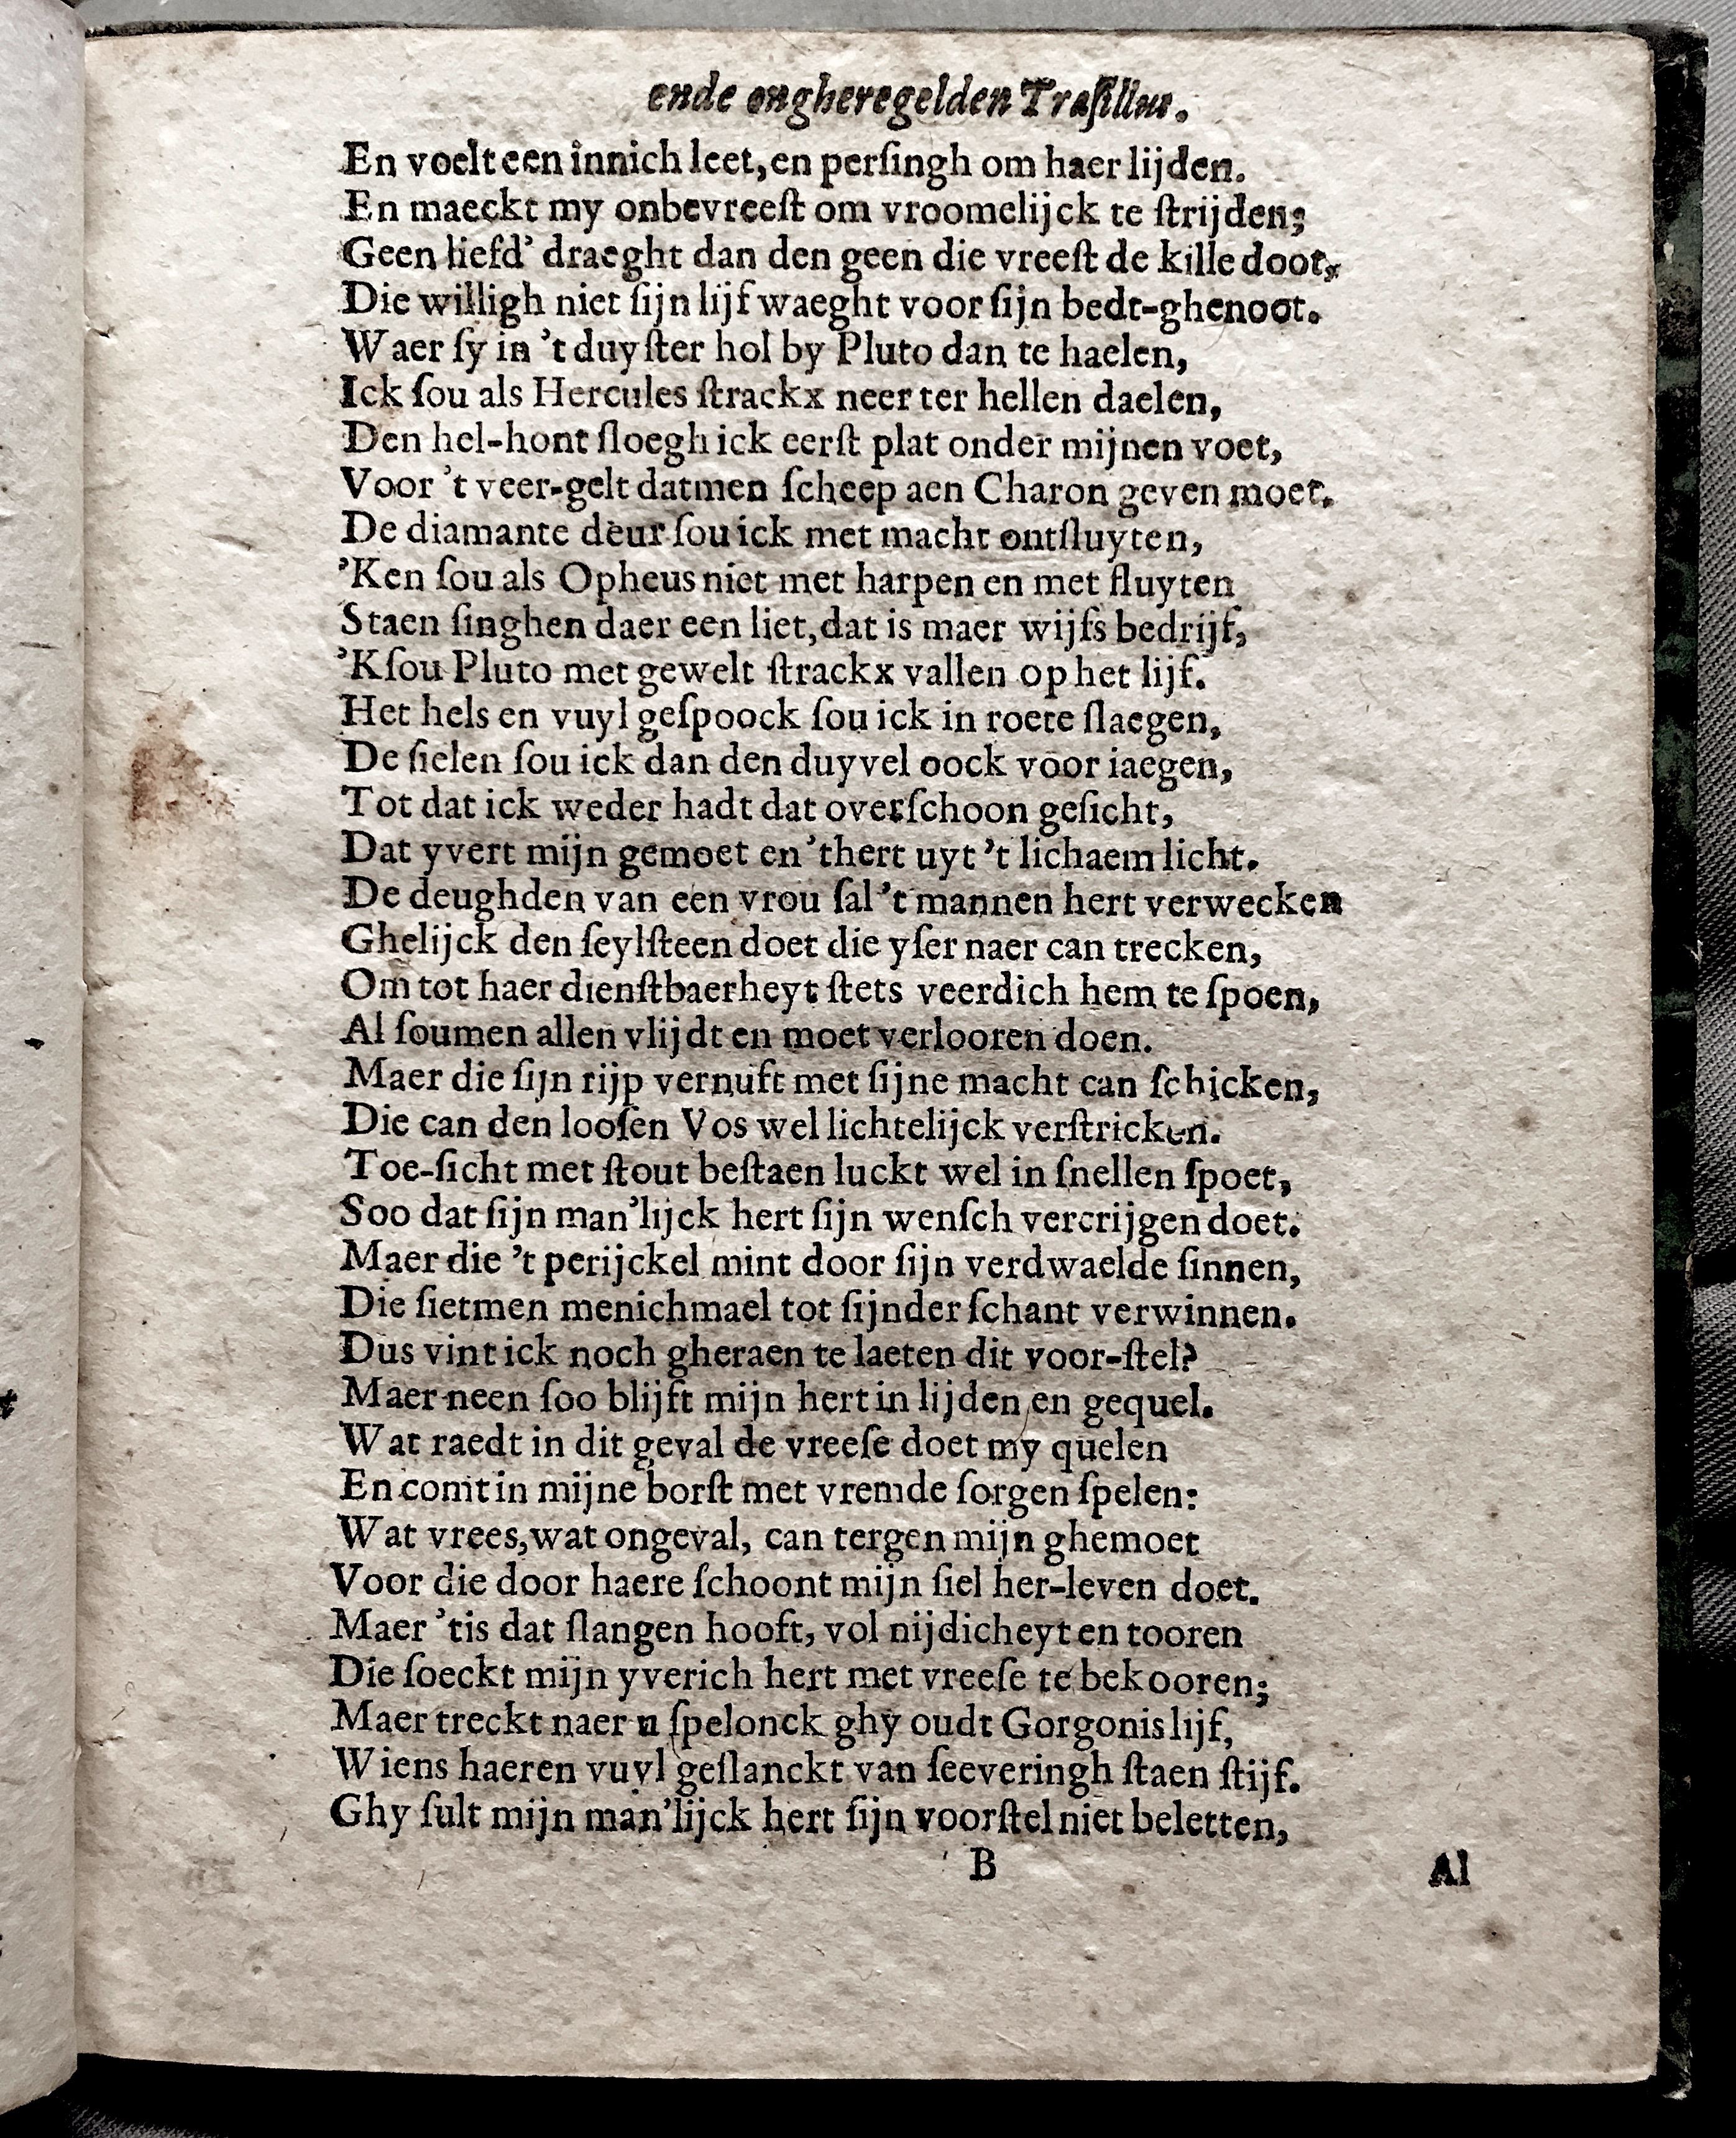 ende ongheregelden Traſillus.
En voelt een innich leet, en perſingh om haer lijden.
En maeckt my onbevreeſt om vroomelijck te ſtrijden;
Geen liefd' draeght dan den geen die vreeſt de kille doot,
Die willigh niet ſijn lijf waeght voor ſijn bedt-ghenoot.
Waer ſy in 't duyſter hol by Pluto dan te haelen,
Ick ſou als Hercules ſtrackx neer ter hellen daelen,
Den hel-hont ſloegh ick eerſt plat onder mijnen voet,
Voor 't veer-gelt datmen ſcheep aen Charon geven moet.
De diamante deur ſou ick met macht ontſluyten,
'Ken ſou als Opheus niet met harpen en met fluyten
Staen ſinghen daer een liet, dat is maer wijfs bedrijf,
'Kſou Pluto met gewelt ſtrackx vallen op het lijf.
Het hels en vuyl geſpoock ſou ick in roete ſlaegen,
De ſielen ſou ick dan den duyvel oock voor iaegen,
Tot dat ick weder hadt dat overſchoon geſicht,
Dat yvert mijn gemoet en 'thert uyt 't lichaem licht.
De deughden van een vrou ſal 't mannen hert verwecken
Ghelijck den ſeylſteen doet die yſer naer can trecken,
Om tot haer dienſtbaerheyt ſtets veerdich hem te ſpoen,
Al ſoumen allen vlijdt en moet verlooren doen.
Maer die ſijn rijp vernuft met ſijne macht can ſchicken,
Die can den looſen Vos wel lichtelijck verſtricken.
Toe-ſicht met ſtout beſtaen luckt wel in ſnellen ſpoet,
Soo dat ſijn man'lijck hert ſijn wenſch vercrijgen doet.
Maer die 't perijckel mint door ſijn verdwaelde ſinnen,
Die ſietmen menichmael tot ſijnder ſchant verwinnen.
Dus vint ick noch gheraen te laeten dit voor-ſtel?
Maer neen ſoo blijft mijn hert in lijden en gequel.
Wat raedt in dit geval de vreeſe doet my quelen
En comt in mijne borſt met vremde ſorgen ſpelen:
Wat vrees, wat ongeval, can tergen mijn ghemoet
Voor die door haere ſchoont mijn ſiel her-leven doet.
Maer 'tis dat ſlangen hooft, vol nijdicheyt en tooren
Die ſoeckt mijn yverich hert met vreeſe te bekooren;
Maer treckt naer u ſpelonck ghy oudt Gorgonis lijf,
Wiens haeren vuyl geſlanckt van ſeeveringh ſtaen ſtijf.
Ghy ſult mijn man'lijck hert ſijn voorſtel niet beletten,
B
Al